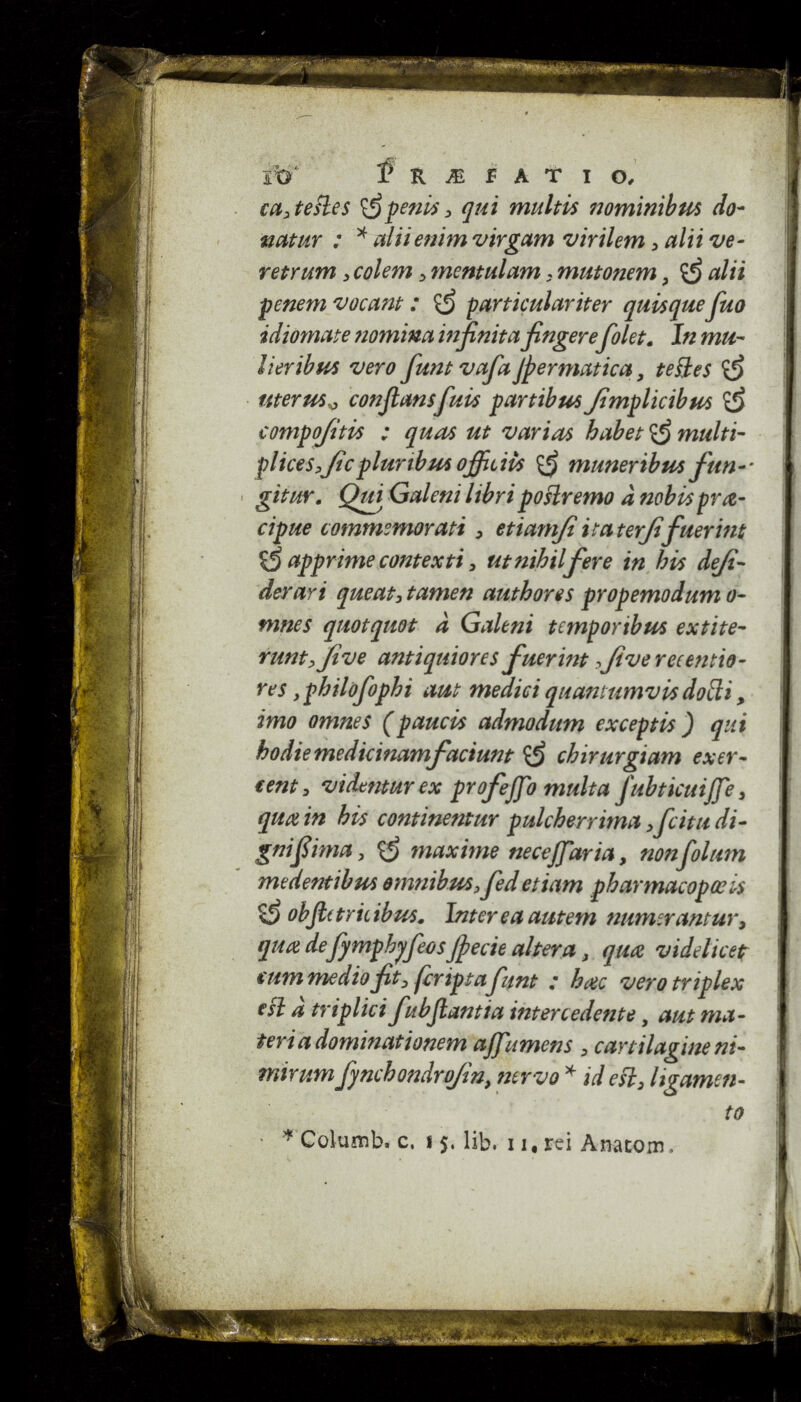 10 PRÆFATIO,
ca, testes & penis, qui multis nominibus do-
natur : * alii enim virgam virilem, alii ve-
retrum, colem, mentulam, mutonem, & alii
penem vocant : & particulariter quisque suo
idiomate nomina infinita fingere solet. In mu-
lieribus vero sunt vasa spermatica, testes &
uterus, constans suis partibus simplicibus &
compositis : quas ut varias habet & multi-
plices, sic pluribus officiis & muneribus fun-
gitur. Qui Galeni libri postremo à nobis præ-
cipue commemorati, etiamsi ita tersi fuerint
& apprime contexti, ut nihil fere in his desi-
derari queat, tamen authores propemodum o-
mnes quotquot à Galeni temporibus extite-
runt, sive antiquiores fuerint, sive recentio-
res, philosophi aut medici quantumvis docti,
imo omnes (paucis admodum exceptis) qui
hodie medicinam faciunt & chirurgiam exer-
cent, videntur ex professo multa subticuisse,
quæ in his continentur pulcherrima, scitu di-
gnissima, & maxime necessaria, non solum
medentibus omnibus, sed etiam pharmacopœis
& obstetricibus. Inter ea autem numerantur,
quæ de symphyseos specie altera, quæ videlicet
cum medio fit, scripta sunt : hæc vero triplex
est à triplici substantia intercedente, aut ma-
teria dominationem assumens, cartilagine ni-
mirum synchondrosin, nervo * id est, ligamen-
to
* Columb. c. 15. lib. 11. rei Anatom.